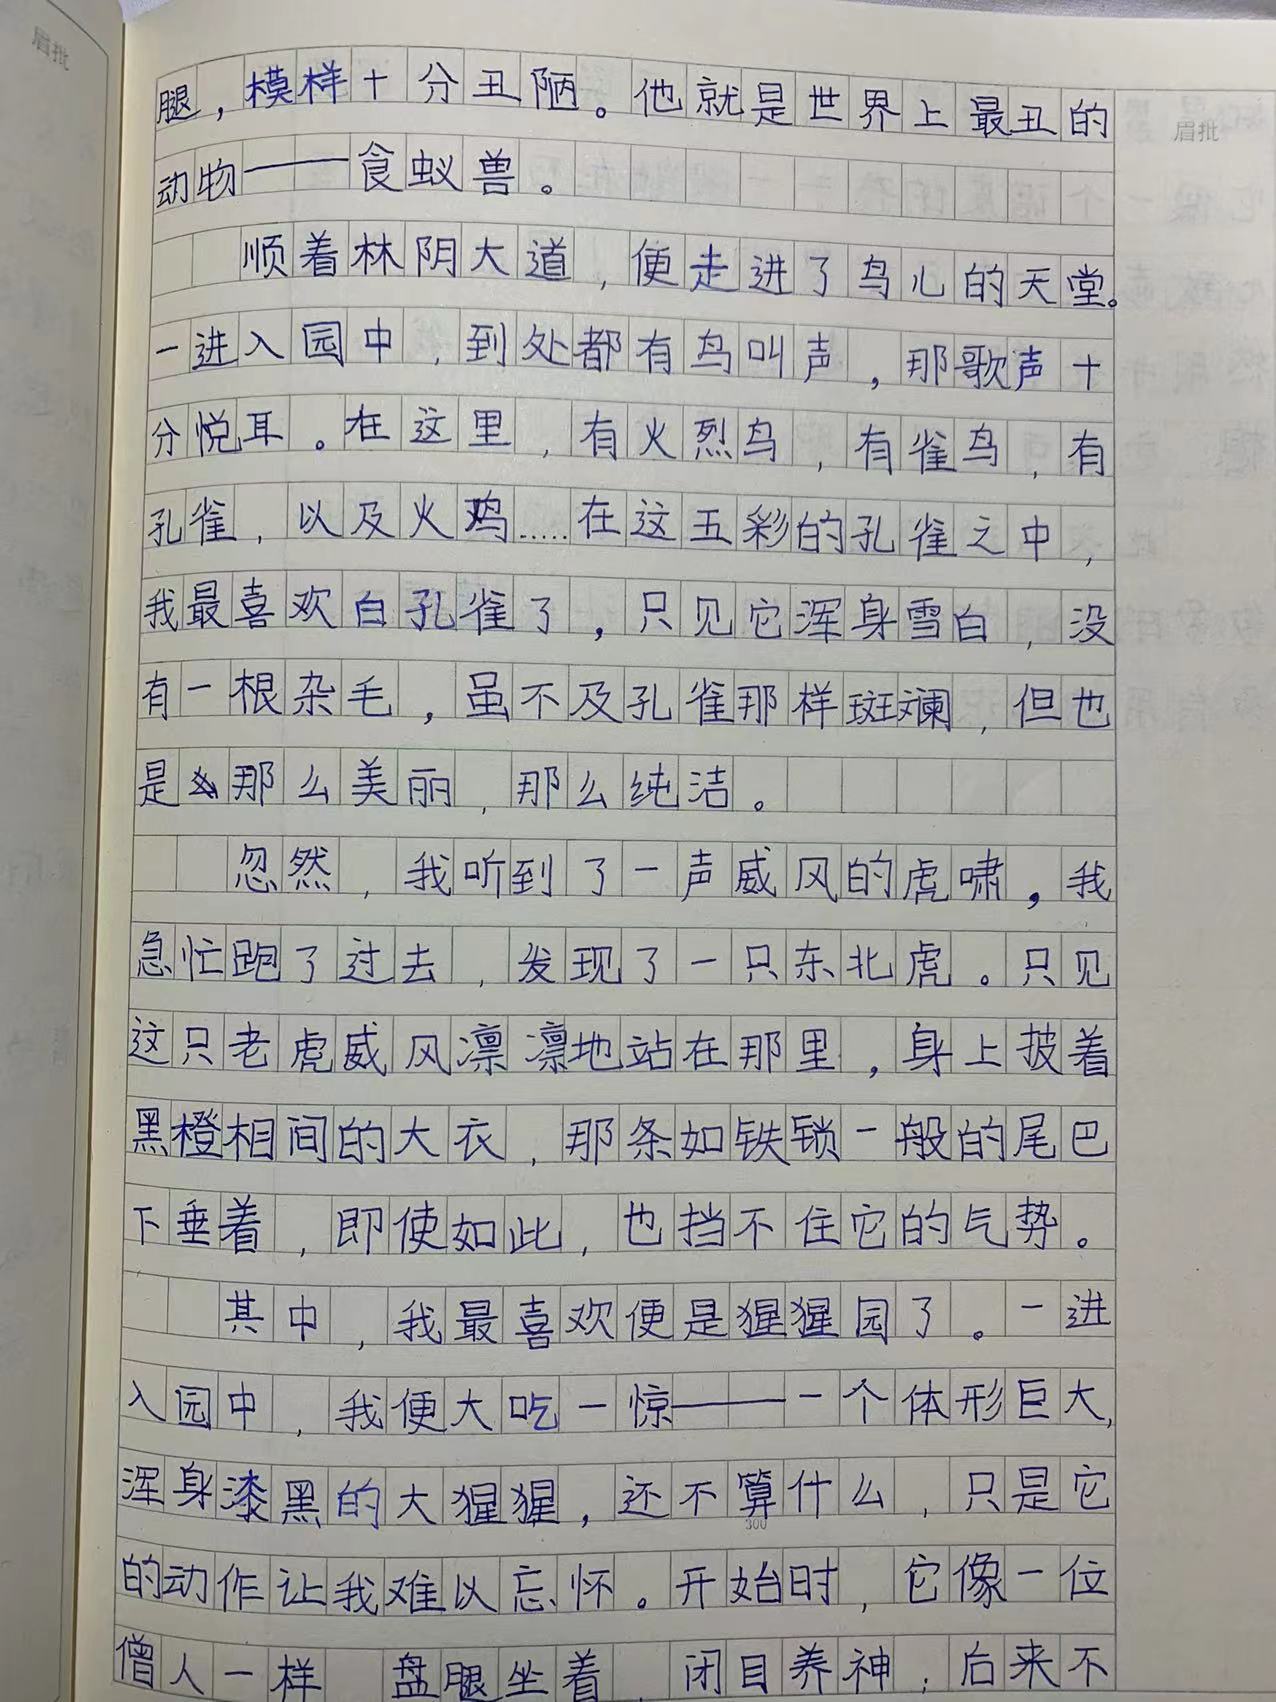 眉批
眉批
腿，模样十分丑陋。他就是世界上最丑的
动物——食蚁兽。
顺着林阴大道，便走进了鸟心的天堂。
一进入园中，到处都有鸟叫声，那歌声十
分悦耳。在这里，有火烈鸟，有雀鸟，有
孔雀，以及火鸡……在这五彩的孔雀之中，
我最喜欢白孔雀了，只见它浑身雪白，没
有一根杂毛，虽不及孔雀那样斑斓，但也
是那么美丽，那么纯洁。
忽然，我听到了一声威风的虎啸，我
急忙跑了过去，发现了一只东北虎。只见
这只老虎威风凛凛地站在那里，身上披着
黑橙相间的大衣，那条如铁锁一般的尾巴
下垂着，即使如此，也挡不住它的气势。
其中，我最喜欢便是猩猩园了。一进
入园中，我便大吃一惊——一个体形巨大，
浑身漆黑的大猩猩，还不算什么，只是它
300
的动作让我难以忘怀。开始时，它像一位
僧人一样 盘腿坐着，闭目养神；后来不